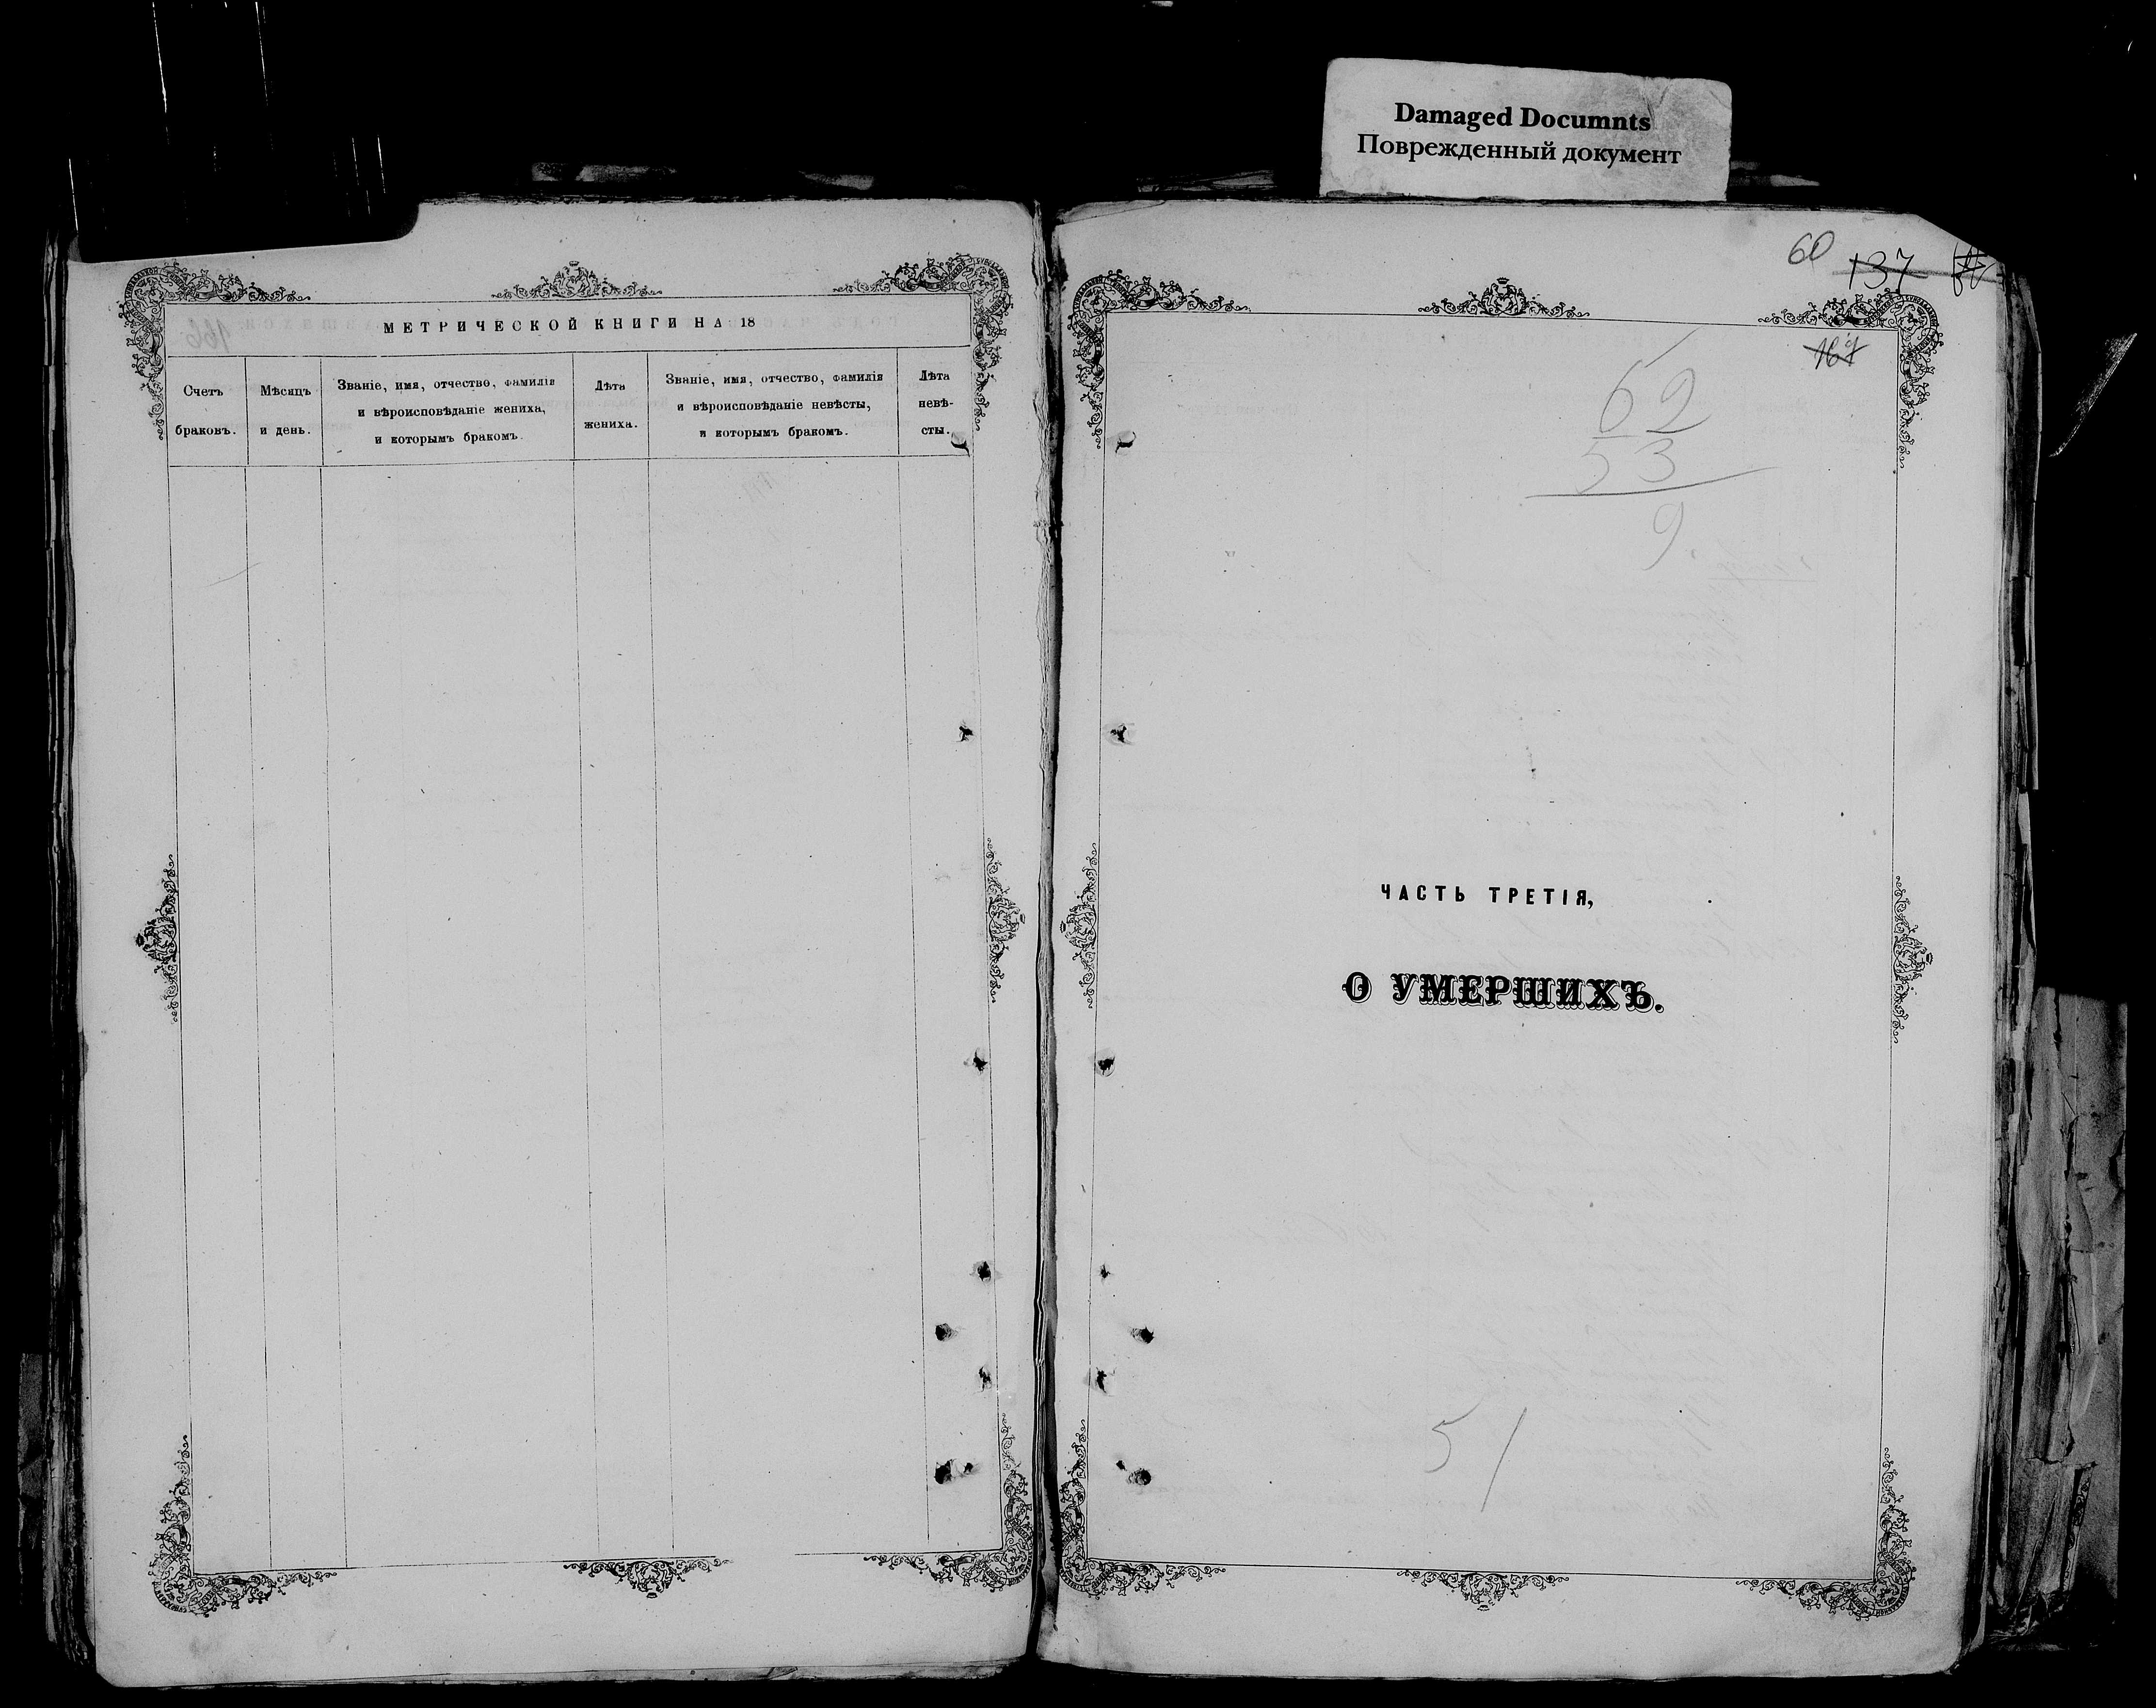 Damaged Documnts
Поврежденный документ
МЕТРИЧЕСКОЙ КНИГИ НА 18
Счетъ
браковъ.
Мѣсяцъ
и день.
Званіе, имя, отчество, фамилія
и вѣроисповѣданіе жениха,
и которымъ бракомъ.
Лѣта
жениха.
Званіе, имя, отчество, фамилія
и вѣроисповѣданіе невѣсты,
и которымъ бракомъ.
Лѣта
невѣ-
сты.
60
137
167
62
53
9.
ЧАСТЬ ТРЕТІЯ,
О УМЕРШИХЪ.
51